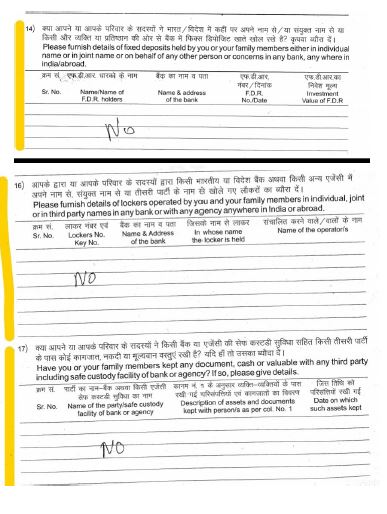 14) क्या आपने या आपके परिवार के सदस्यों ने भारत/विदेश में कहीं पर अपने नाम से/या संयुक्त नाम से या
किसी और व्यक्ति या प्रतिष्ठान की ओर से बैंक में फिक्स डिपोजिट खाते खोल रखे है? कृपया ब्यौरा दें।
Please furnish details of fixed deposits held by you or your family members either in individual
name or in joint name or on behalf of any other person or concerns in any bank, any where in
india/abroad.
क्रम सं. एफ.डी.आर. धारको के नाम बैंक का नाम व पता एफ.डी.आर. एफ.डी.आर.का
नंबर/दिनांक निवेश मूल्य
Sr. No. Name/Name of Name & address F.D.R. Investment
F.D.R. holders of the bank No./Date Value of F.D.R
No
16) आपके द्वारा या आपके परिवार के सदस्यों द्वारा किसी भारतीय या विदेश बैंक अथवा किसी अन्य एजेंसी में
अपने नाम से, संयुक्त नाम से या तीसरी पार्टी के नाम से खोले गए लॉकरों का ब्यौरा दें।
Please furnish details of lockers operated by you and your family members in individual, joint
or in third party names in any bank or with any agency anywhere in India or abroad.
क्रम सं. लाकर नंबर एवं बैंक का नाम व पता जिसके नाम से लाकर संचालित करने वाले/वालों के नाम
Sr. No. Lockers No. Name & Address In whose name Name of the operator/s
Key No. of the bank the locker is held
NO
17) क्या आपने या आपके परिवार के सदस्यों ने किसी बैंक या एजेंसी की सेफ कस्टडी सुविधा सहित किसी तीसरी पार्टी
के पास कोई कागजात, नकदी या मूल्यवान वस्तुएं रखी है? यदि हाँ तो उसका ब्यौरा दें।
Have you or your family members kept any document, cash or valuable with any third party
including safe custody facility of bank or agency? If so, please give details.
क्रम सं. पार्टी का नाम-बैंक अथवा किसी एजेंसी कालम नं. १ के अनुसार व्यक्ति-व्यक्तियों के पास जिस तिथि को
सेफ कस्टडी सुविधा का नाम रखी गई परिसंपत्तियों एवं कागजातों का विवरण परिसंपत्तियाँ रखी गई
Sr. No. Name of the party/safe custody Description of assets and documents Date on which
facility of bank or agency kept with person/s as per col. No. 1 such assets kept
NO